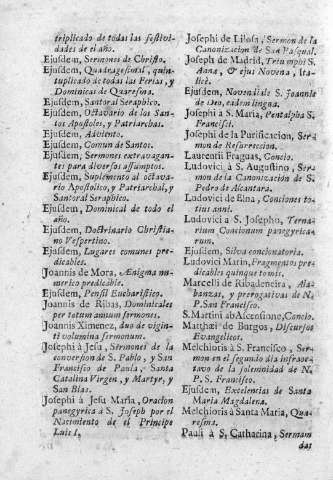 triplicado de todas las festivi-
dades de el año.
Ejusdem, Sermones de Christo.
Ejusdem, Quadragesimal, quin-
tuplicado de todas las Ferias, y
Dominicas de Quaresma.
Ejusdem, Santoral Seraphico.
Ejusdem, Octavario de los San-
tos Apostoles, y Patriarchas.
Ejusdem, Adviento.
Ejusdem, Comun de Santos.
Ejusdem, Sermones extravagan-
tes para diversos assumptos.
Ejusdem, Suplemento al octava-
rio Apostolico, y Patriarchal, y
Santoral Seraphico.
Ejusdem, Dominical de todo el
año.
Ejusdem, Doctrinario Christia-
no Vespertino.
Ejusdem, Lugares comunes pre-
dicables.
Joannis de Mora, Ænigma nu-
merico predicable.
Ejusdem, Pensil Eucharistico.
Joannis de Ribas, Dominicales
per totum annum sermones.
Joannis Ximenez, duo de vigin-
ti volumina sermonum.
Josephi à Jesu, Sermones de la
conversion de S. Pablo, y San
Francisco de Paula, Santa
Catalina Virgen, y Martyr, y
San Blas.
Josephi à Jesu Maria, Oracion
panegyrica à S. Joseph por el
Nacimiento de el Principe
Luis I.
Josephi de Lilosa, Sermon de la
Canonizacion de San Pasqual.
Joseph de Madrid, Triumphi S.
Annæ, & ejus Novena, Ita-
licè.
Ejusdem, Novendi ale S. Joannis
de Deo, eadem lingua.
Josephi à S. Maria, Pentalpha S.
Francisci.
Josephi de la Purificacion, Ser-
mon de Resurreccion.
Laurentii Fraguas, Concio.
Ludovici à S. Augustino, Ser-
mon de la Canonizacion de S.
Pedro de Alcantara.
Ludovici de Elna, Conciones to-
tius anni.
Ludovici à S. Josepho, Terna-
rium Concionum panegyrica-
rum.
Ejusdem, Silva concionatoria.
Ludovici Marin, Fragmentos pre-
dicables quinque tomis.
Marcelli de Ribadeneira, Ala-
banzas, y prerogativas de N.
P. San Francisco.
S. Martini ab Ascensione, Concio.
Matthæi de Burgos, Discursos
Evangelicos.
Melchioris à S. Francisco, Ser-
mon en el segundo dia infraoc-
tavo de la solemnidad de N.
P. S. Francisco.
Ejusdem, Excelencias de Santa
Maria Magdalena.
Melchioris à Santa Maria, Qua-
resma.
Pauli à S. Catharina, Sermam
das